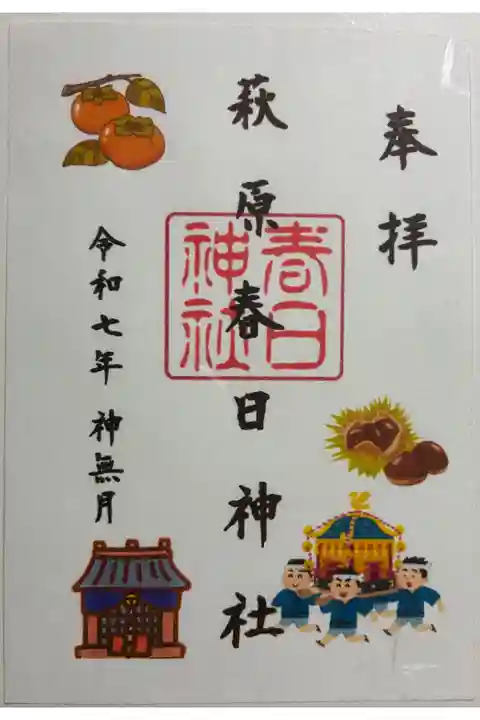 奉拝
萩原春日神社
春日
神社
令和七年 神無月